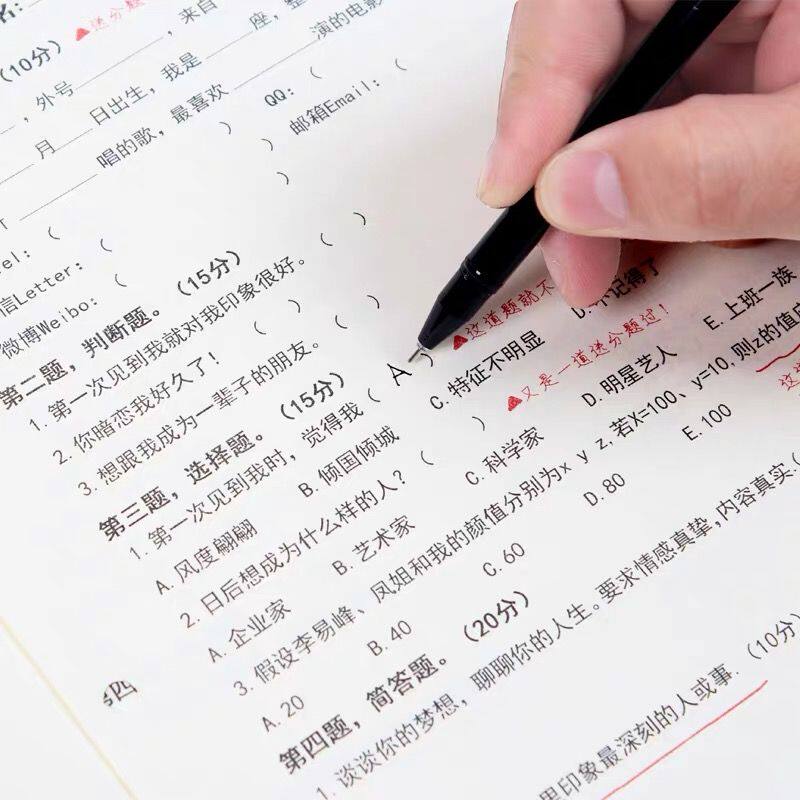 名:
▲送分题
(10分)
，外号________，来自________座，整
____月____日出生，我是____演的电影
________唱的歌，最喜欢
QQ：（
邮箱Email：（ ）
el：（ ）
信Letter：（ ）
微博Weibo：（ ）
第二题，判断题。（15分）
1. 第一次见到我就对我印象很好。（ ）
2. 你暗恋我好久了！（ ）
3. 想跟我成为一辈子的朋友。（ ）
第三题，选择题。（15分）
▲这道题就不
1. 第一次见到我时，觉得我（ A ）
A. 风度翩翩 B. 倾国倾城 C. 特征不明显 D. 不记得了
▲又是一道送分题过！
2. 日后想成为什么样的人？（ ）
A. 企业家 B. 艺术家 C. 科学家 D. 明星艺人 E. 上班一族
3. 假设李易峰、凤姐和我的颜值分别为x y z, 若X=100、y=10, 则z的值应
这
A. 20 B. 40 C. 60 D. 80 E. 100
第四题，简答题。（20分）
1. 谈谈你的梦想，聊聊你的人生。要求情感真挚，内容真实.（
里印象最深刻的人或事.（10分）
四